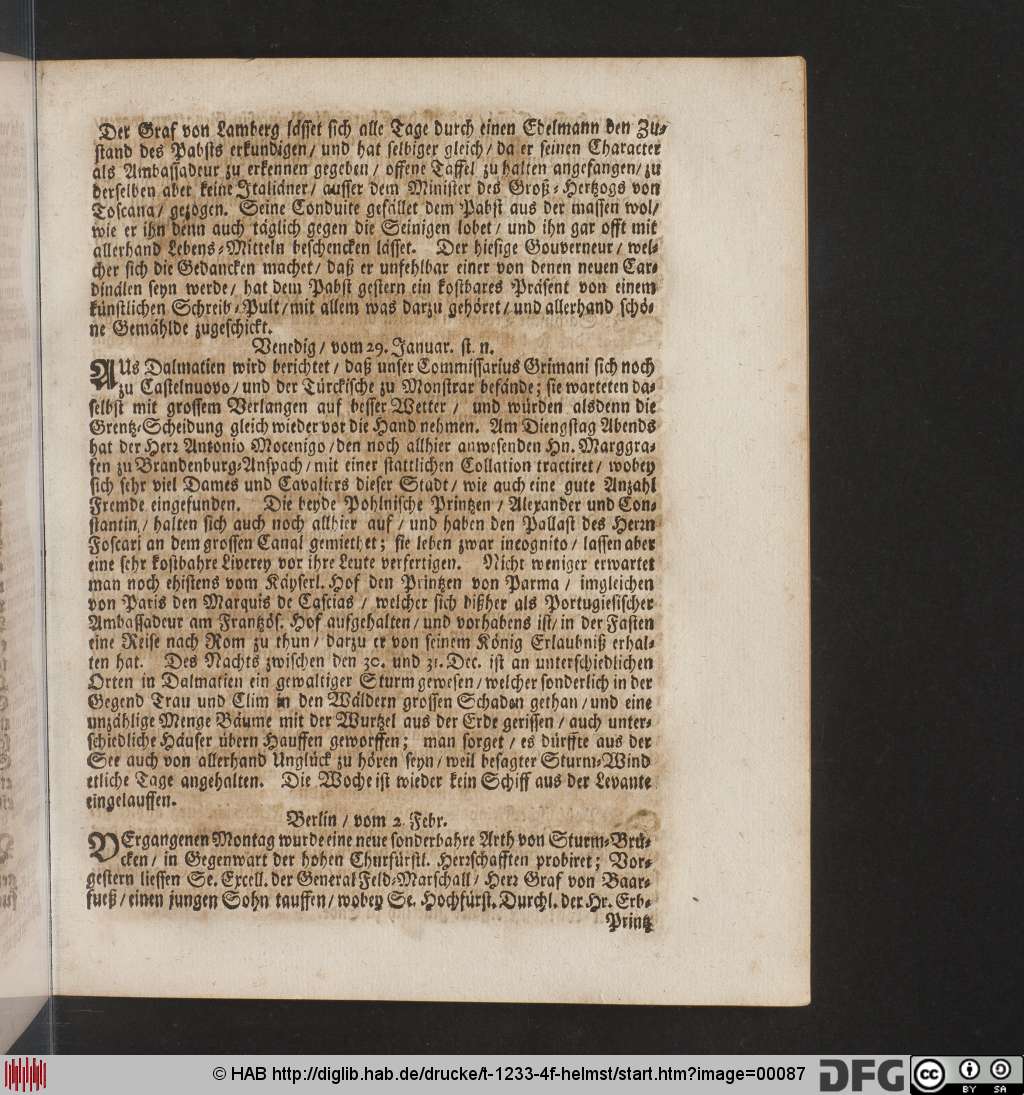 Der Graf von Lamberg lässet sich alle Tage durch einen Edelmann den Zu-
stand des Pabsts erkundigen/ und hat selbiger gleich/ da er seinen Character
als Ambassadeur zu erkennen gegeben/ offene Taffel zu halten angefangen/ zu
derselben aber keine Italiäner/ ausser dem Minister des Groß-Hertzogs von
Toscana/ gezogen. Seine Conduite gefället dem Pabst aus der massen wol/
wie er ihn denn auch täglich gegen die Seinigen lobet/ und ihn gar offt mit
allerhand Lebens-Mitteln beschencken lässet. Der hiesige Gouverneur/ wel-
cher sich die Gedancken machet/ daß er unfehlbar einer von denen neuen Car-
dinälen seyn werde/ hat dem Pabst gestern ein kostbares Präsent von einem
künstlichen Schreib-Pult/ mit allem was darzu gehöret/ und allerhand schö-
ne Gemählde zugeschickt.
Venedig/ vom 29. Januar. st. n.
AUs Dalmatien wird berichtet/ daß unser Commissarius Grimani sich noch
zu Castelnuovo/ und der Türckische zu Monstrar befände; sie warteten da-
selbst mit grossem Verlangen auf besser Wetter/ und würden alsdenn die
Grentz-Scheidung gleich wieder vor die Hand nehmen. Am Diengstag Abends
hat der Herr Antonio Mocenigo/ den noch allhier anwesenden Hn. Marggra-
fen zu Brandenburg-Anspach/ mit einer stattlichen Collation tractiret/ wobey
sich sehr viel Dames und Cavaliers dieser Stadt/ wie auch eine gute Anzahl
Fremde eingefunden. Die beyde Pohlnische Printzen/ Alexander und Con-
stantin/ halten sich auch noch allhier auf/ und haben den Pallast des Herrn
Foscari an dem grossen Canal gemiethet; sie leben zwar incognito/ lassen aber
eine sehr kostbahre Liverey vor ihre Leute verfertigen. Nicht weniger erwartet
man noch ehistens vom Käyserl. Hof den Printzen von Parma/ imgleichen
von Paris den Marquis de Cascias/ welcher sich bißher als Portugiesischer
Ambassadeur am Frantzös. Hof aufgehalten/ und vorhabens ist/ in der Fasten
eine Reise nach Rom zu thun/ darzu er von seinem König Erlaubniß erhal-
ten hat. Des Nachts zwischen den 30. und 31. Dec. ist an unterschiedlichen
Orten in Dalmatien ein gewaltiger Sturm gewesen/ welcher sonderlich in der
Gegend Trau und Clim in den Wäldern grossen Schaden gethan/ und eine
unzählige Menge Bäume mit der Wurtzel aus der Erde gerissen/ auch unter-
schiedliche Häuser übern Hauffen geworffen; man sorget/ es dürffte aus der
See auch von allerhand Unglück zu hören seyn/ weil besagter Sturm-Wind
etliche Tage angehalten. Die Woche ist wieder kein Schiff aus der Levante
eingelauffen.
Berlin/ vom 2. Febr.
VErgangenen Montag wurde eine neue sonderbahre Arth von Sturm-Brü-
cken/ in Gegenwart der hohen Churfürstl. Herrschafften probiret; Vor-
gestern liessen Se. Excell. der General Feld-Marschall/ Herr Graf von Baar-
fueß/ einen jungen Sohn tauffen/ wobey Se. Hochfürst. Durchl. der Hr. Erb-
Printz
© HAB http://diglib.hab.de/drucke/t-1233-4f-helmst/start.htm?image=00087
DFG
cc BY SA